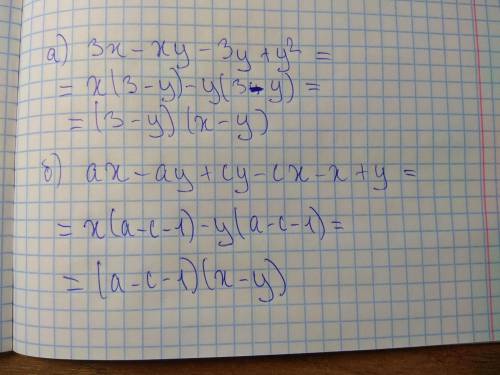 а) 3x - xy - 3y + y² =
= x(3 - y) - y(3 - y) =
= (3 - y)(x - y)
б) ax - ay + cy - cx - x + y =
= x(a - c - 1) - y(a - c - 1) =
= (a - c - 1)(x - y)